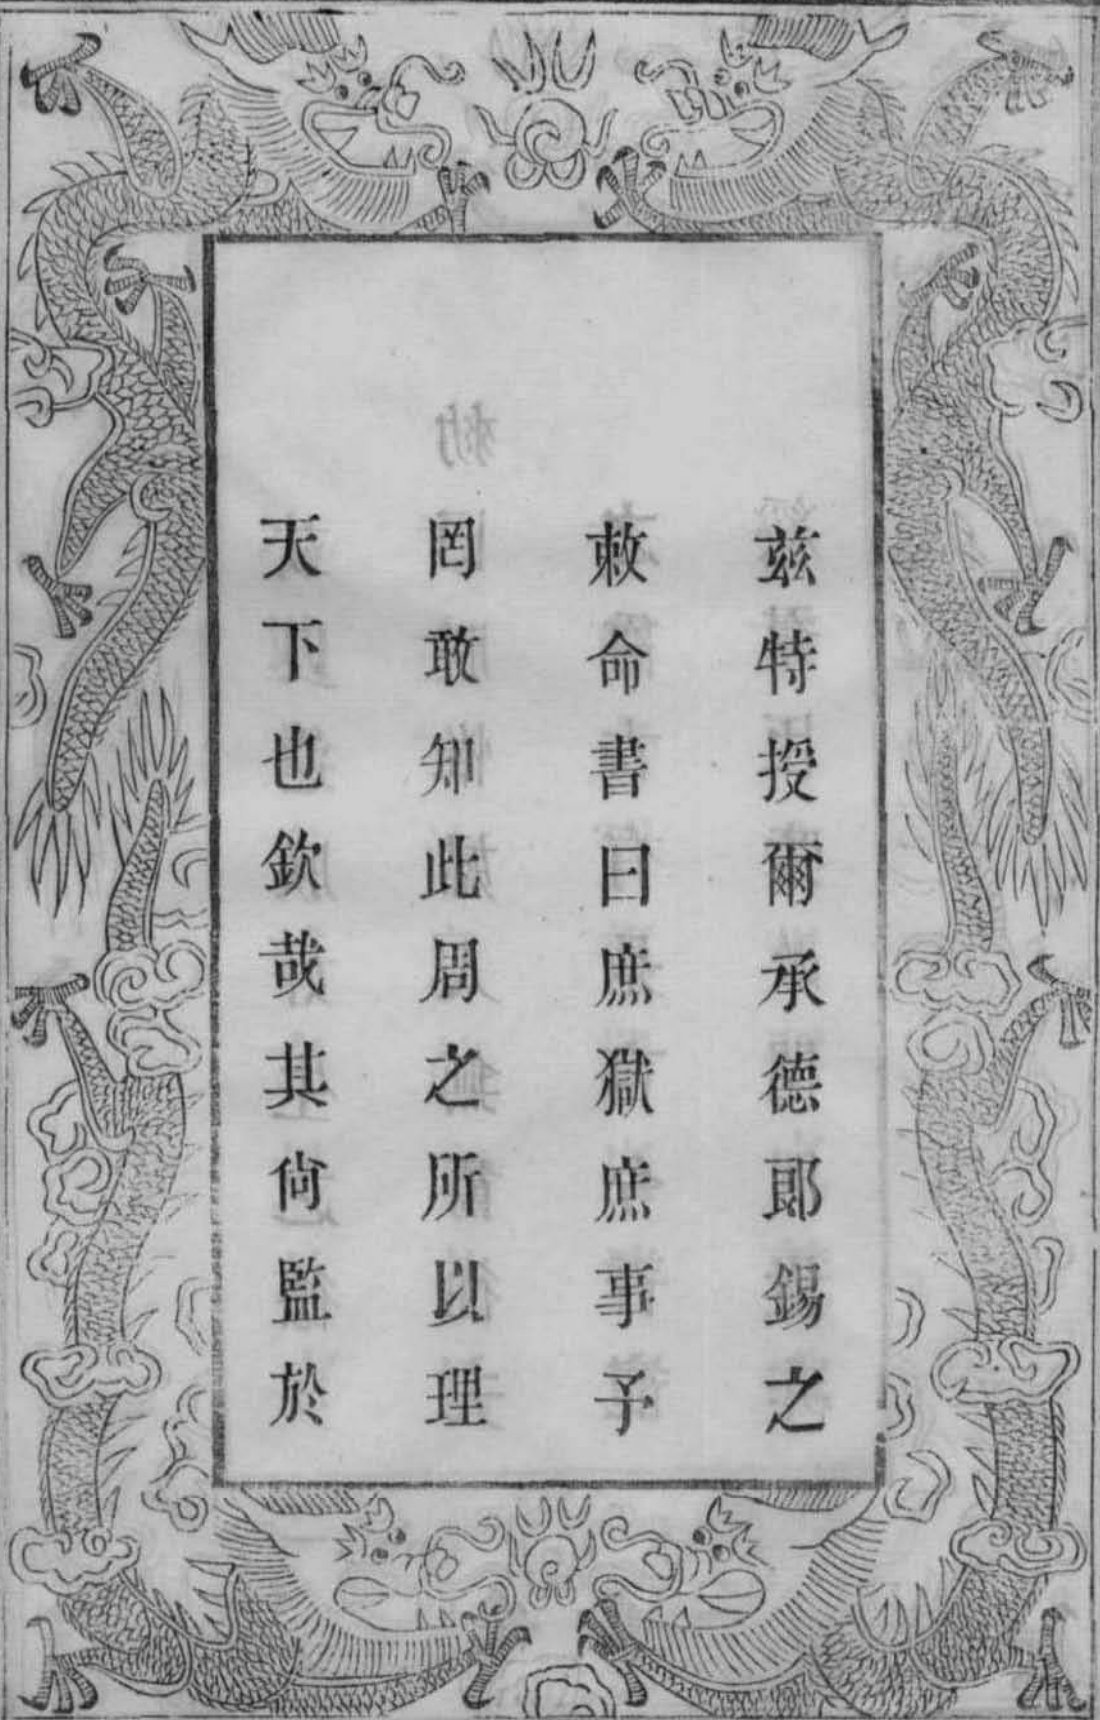 茲特授爾承德郎錫之
敕命書曰庶獄庶事予
罔敢知此周之所以理
天下也欽哉其尙監於